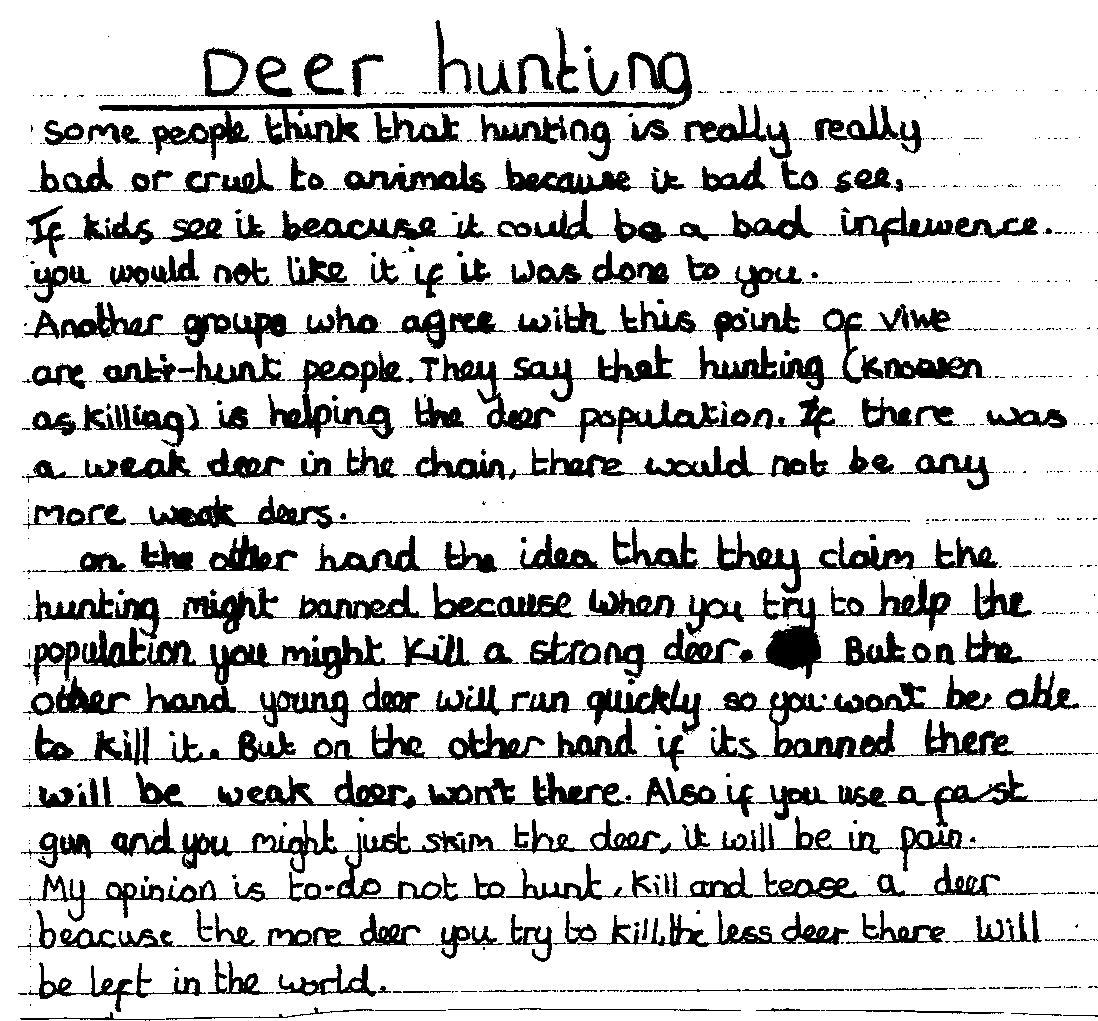 Deer hunting
Some people think that hunting is really really
bad or cruel to animals because it bad to see,
If kids see it beacuse it could be a bad inflewence.
you would not like it if it was done to you.
Another groups who agree with this point of viwe
are anti-hunt people. They say that hunting (knowen
as killing) is helping the deer population. If there was
a weak deer in the chain, there would not be any
more weak deers.
on the other hand the idea that they claim the
hunting might banned because when you try to help the
population you might kill a strong deer. But on the
other hand young deer will run quickly so you won't be able
to kill it. But on the other hand if its banned there
will be weak deer, won't there. Also if you use a fast
gun and you might just skim the deer, it will be in pain.
My opinion is to-do not to hunt, kill and tease a deer
beacuse the more deer you try to kill, the less deer there will
be left in the world.